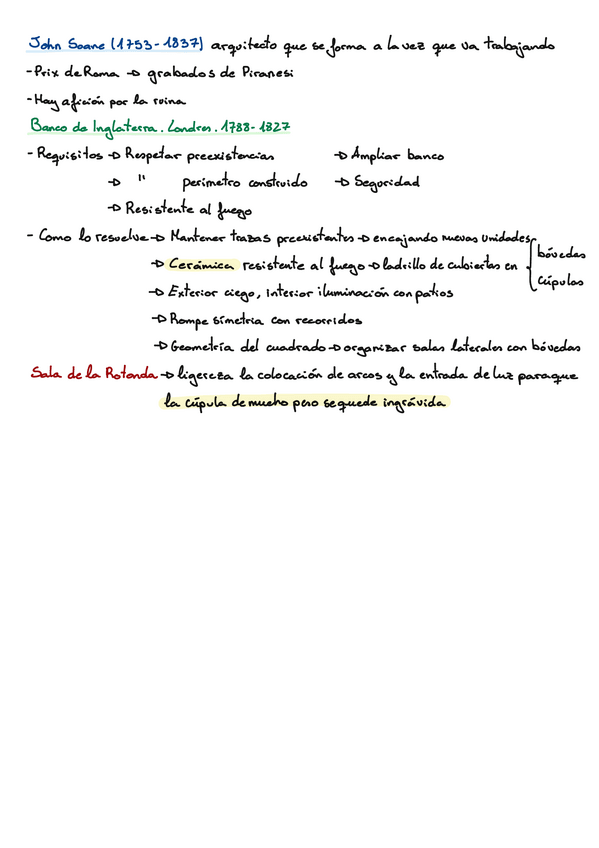 John Soane (1753-1837) arquitecto que se forma a la vez que va trabajando
-Prix de Roma → grabados de Piranesi
-Hay afición por la ruina
Banco de Inglaterra. Londres. 1788-1827
- Requisitos → Respetar preexistencias → Ampliar banco
→ " perímetro construido → Seguridad
→ Resistente al fuego
- Como lo resuelve → Mantener trazas preexistentes → encajando nuevas unidades
→ Cerámica resistente al fuego → ladrillo de cubiertas en { bóvedas
cúpulas
→ Exterior ciego, interior iluminación con patios
→ Rompe simetría con recorridos
→ Geometría del cuadrado → organizar salas laterales con bóvedas
Sala de la Rotonda → ligereza la colocación de arcos y la entrada de luz para que
la cúpula de mucho pero se quede ingrávida